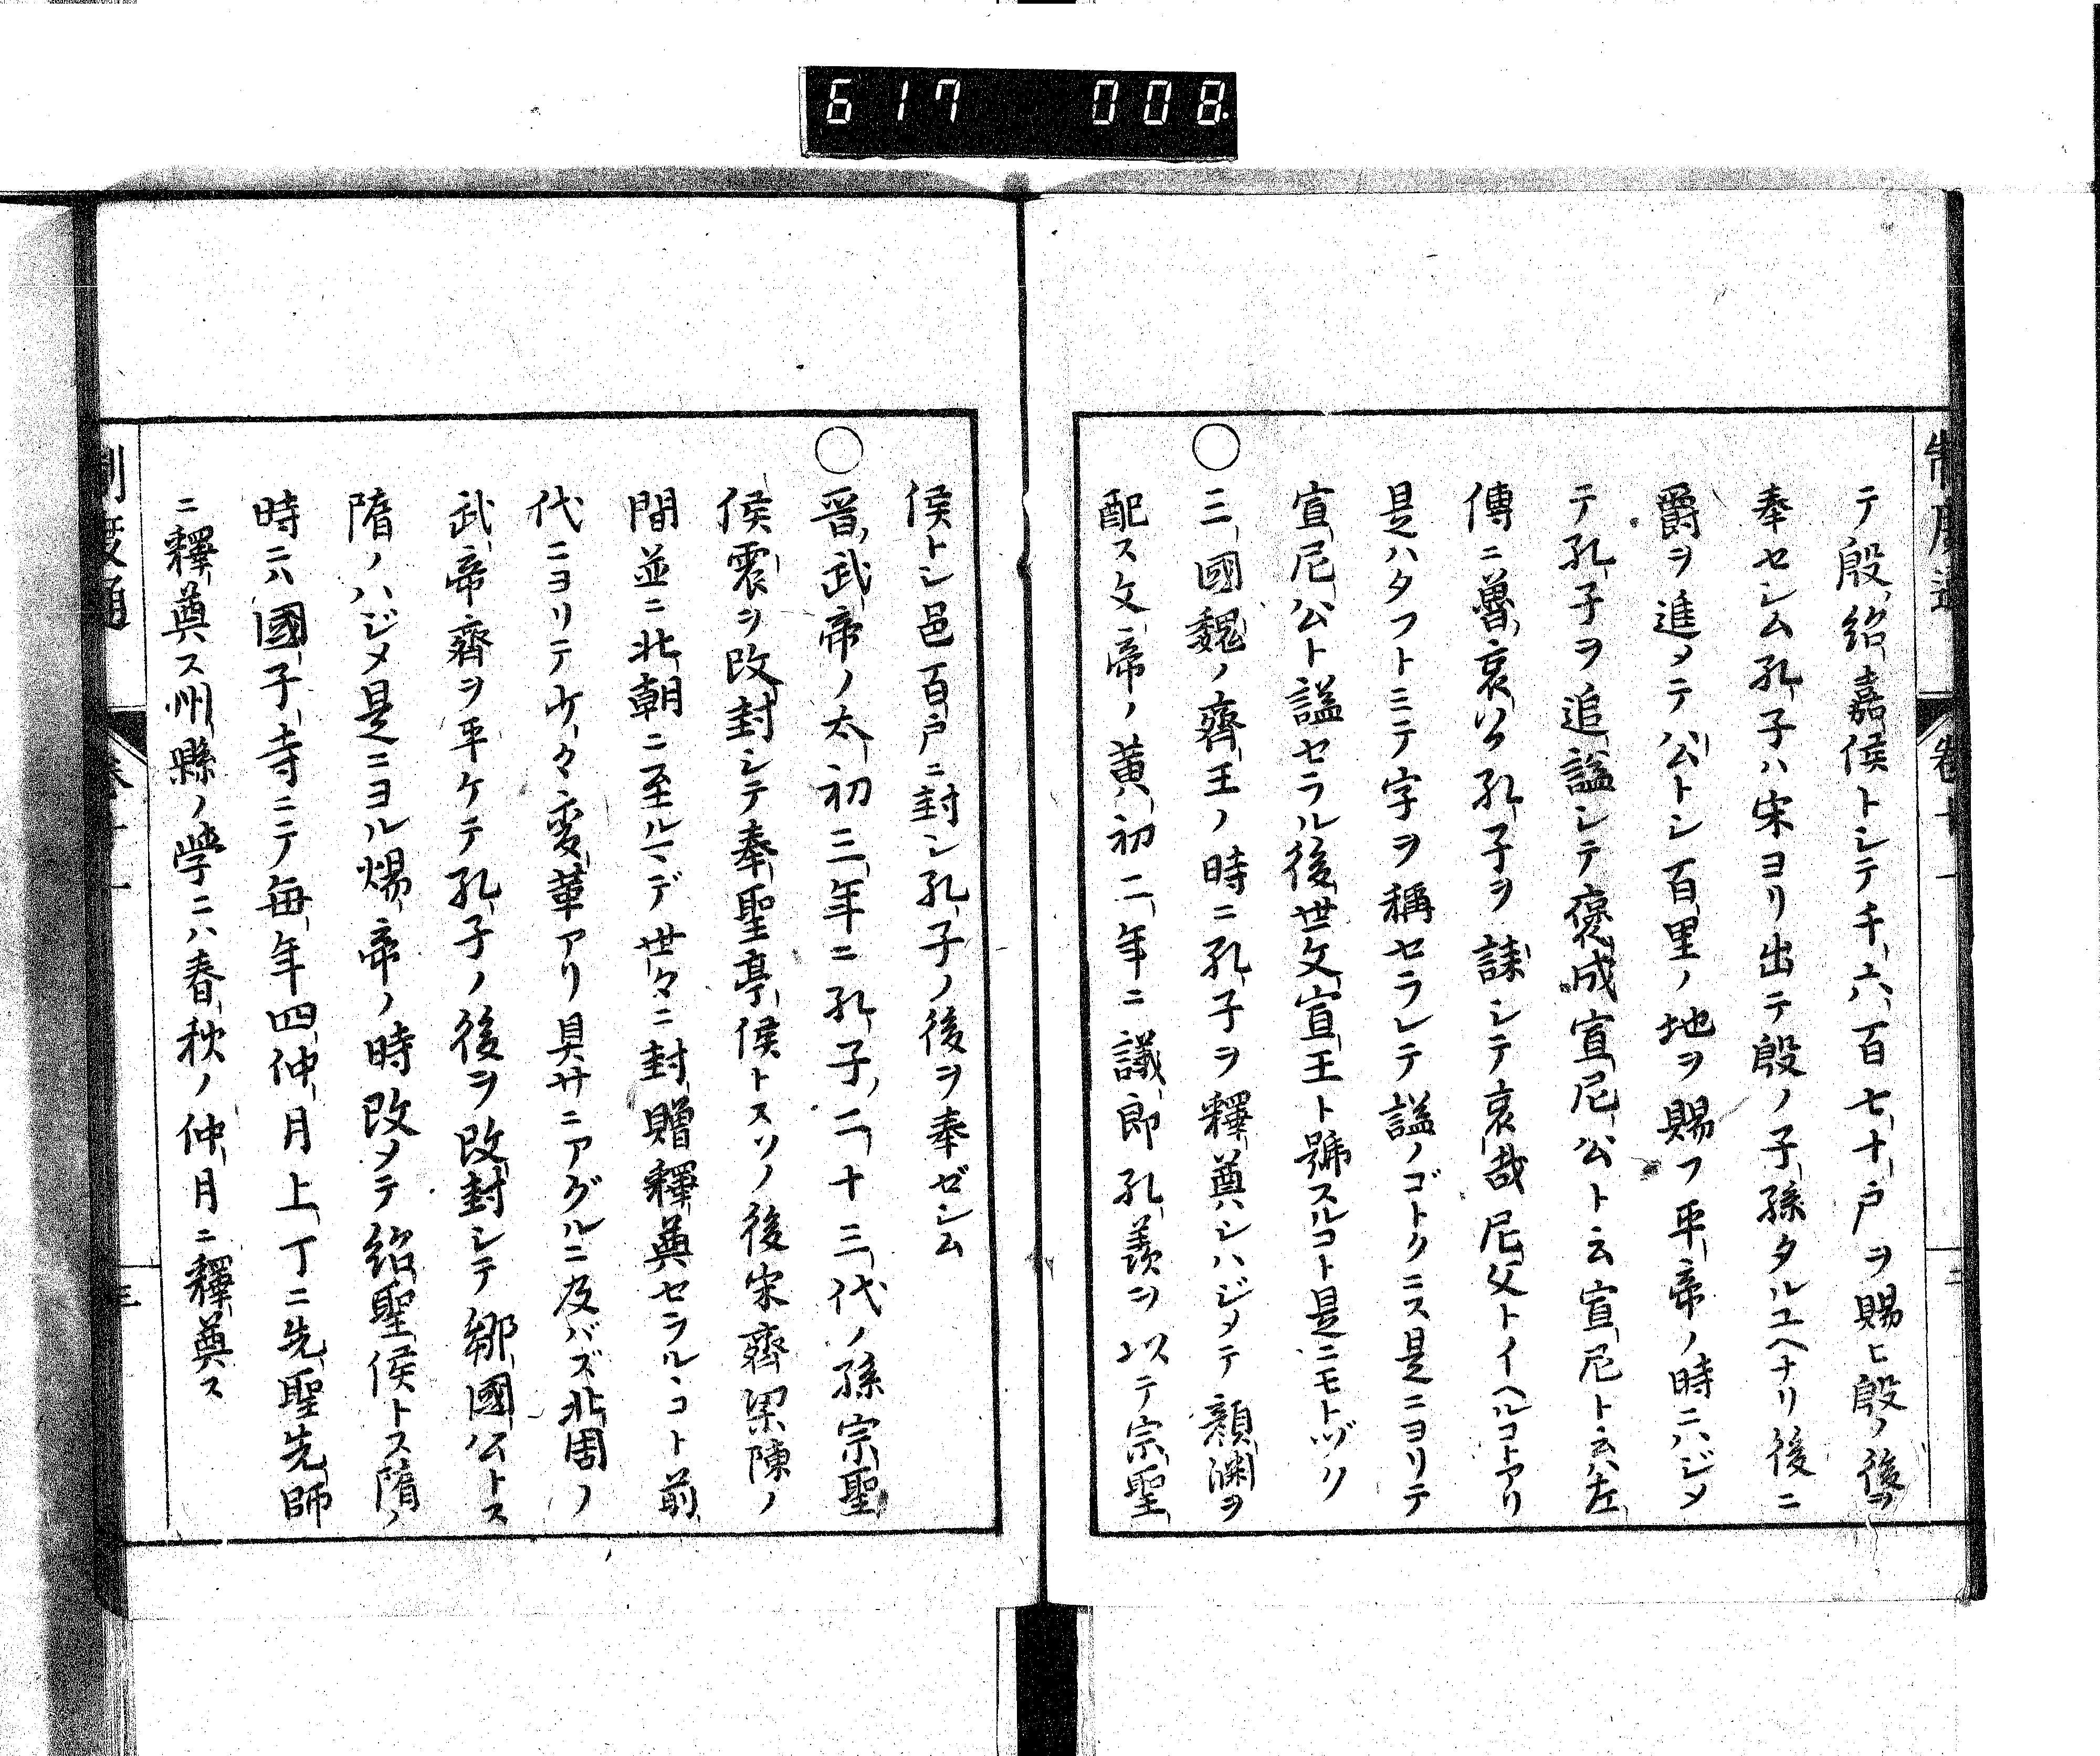 617 008
テ殷紹嘉侯トシテ千六百七十戸ヲ賜ヒ殷ノ後ヲ
奉セシム孔子ハ宋ヨリ出テ殷ノ子孫タルユヘナリ後ニ
爵ヲ進メテ公トシ百里ノ地ヲ賜フ平帝ノ時ニハジメ
テ孔子ヲ追謚シテ褒成宣尼公ト云宣尼ト云ハ左
傳ニ魯哀公孔子ヲ誄シテ哀哉尼父トイヘルコトアリ
是ハタフトミテ字ヲ稱セラレテ謚ノゴトクニス是ニヨリテ
宣尼公ト謚セラル後世文宣王ト號スルコト是ニモトヅク
○三國魏ノ齊王ノ時ニ孔子ヲ釋奠シハジメテ顏淵ヲ
配ス文帝ノ黄初二年ニ議郎孔羨ヲ以テ宗聖
侯トシ邑百戸ニ封シ孔子ノ後ヲ奉ゼシム
○晋武帝ノ太初三年ニ孔子二十三代ノ孫宗聖
侯震ヲ改封シテ奉聖亭侯トスソノ後宋齊梁陳ノ
間並ニ北朝ニ至ルマデ世々ニ封贈釋奠セラルヽコト前
代ニヨリテ少々変革アリ具サニアグルニ及バズ北周ノ
武帝齊ヲ平ケテ孔子ノ後ヲ改封シテ鄒國公トス
隋ノハジメ是ニヨル煬帝ノ時改メテ紹聖侯トス隋ノ
時ニハ國子寺ニテ毎年四仲月上丁ニ先聖先師
ニ釋奠ス州縣ノ學ニハ春秋ノ仲月ニ釋奠ス
制度通
卷十一
三